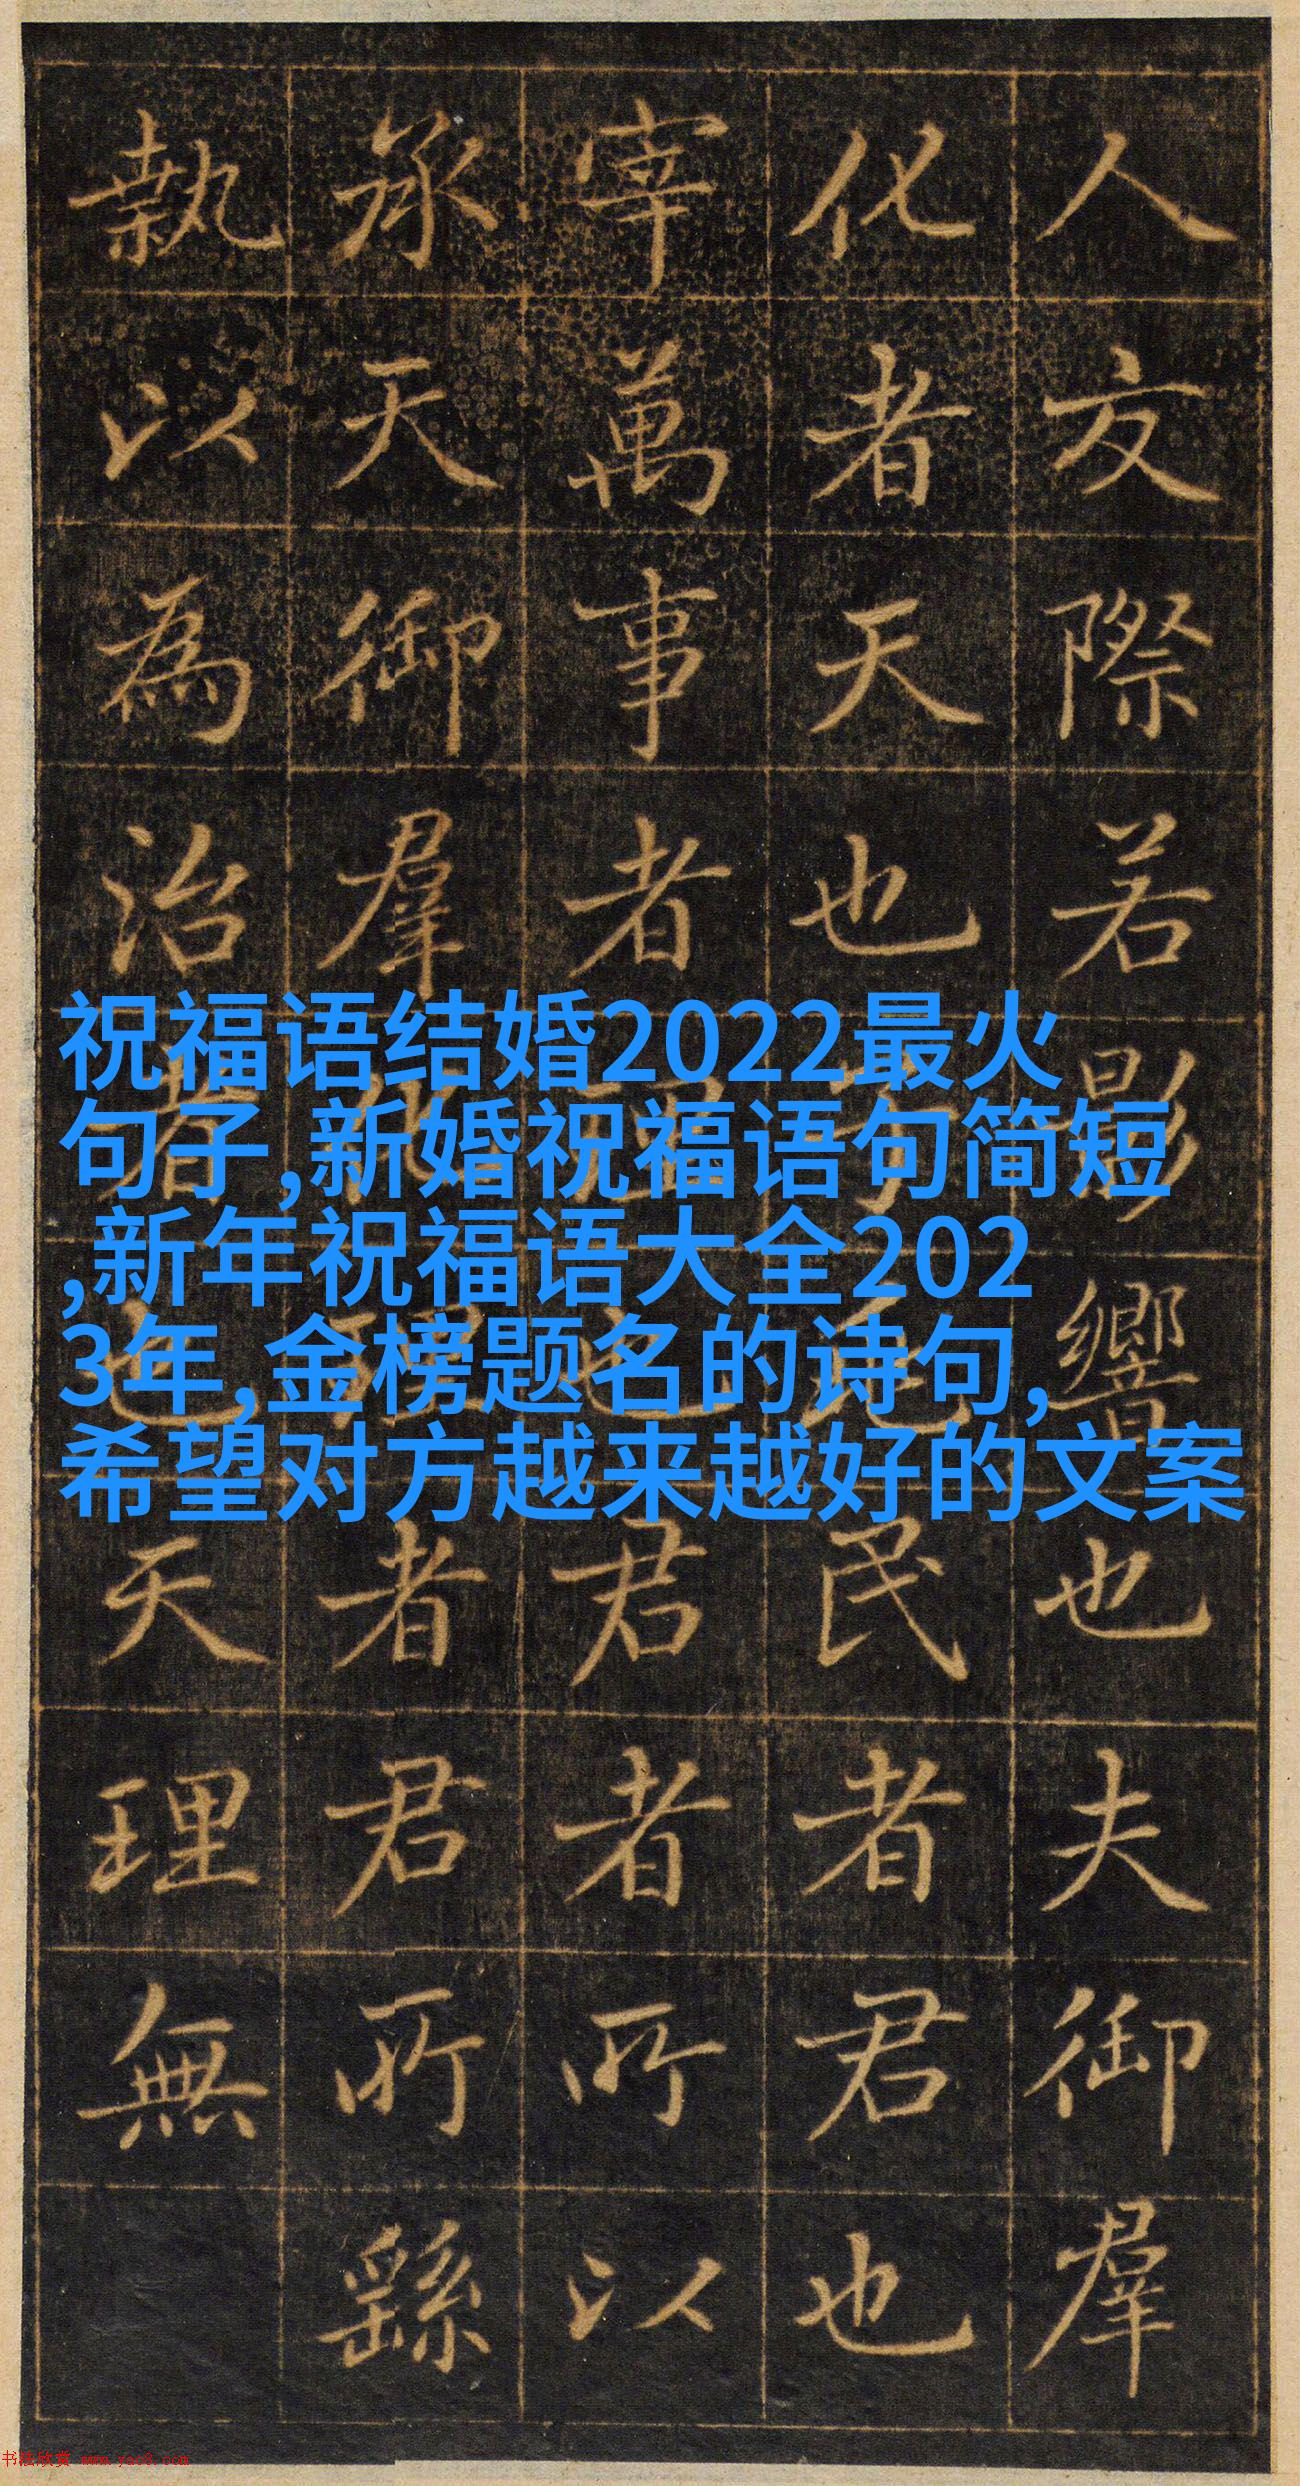 人友際若影響也夫御羣
化者天也民者君也
宰萬事者也君者所以
承天御羣者君所繇
執以為治者也天理無
祝福语结婚2022最火
句子,新婚祝福语句简短
,新年祝福语大全202
3年,金榜题名的诗句,
希望对方越来越好的文案
书法欣赏 www.yac8.com